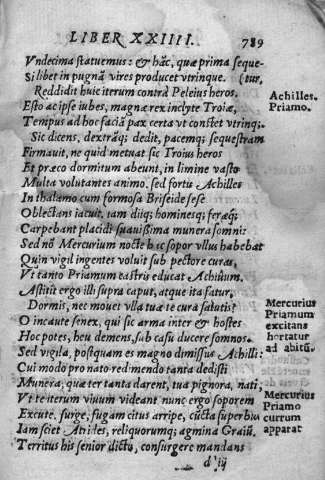 LIBER XXIIII. 789
Vndecima statuemus: & hãc, quæ prima seque-
Si libet in pugnã vires producet vtrinque. (tur,
Reddidit huic iterum contrà Peleius heros.
Achilles
Priamo.
Esto ac ipse iubes, magnæ rex inclyte Troiæ,
Tempus ad hoc faciã pax certa vt constet vtrinq;.
Sic dicens, dextrãq; dedit, pacemq; sequestram
Firmauit, ne quid metuat sic Troius heros
Et præco dormitum abeunt, in limine vasto
Multa volutantes animo. sed fortis Achilles
In thalamo cum formosa Briseide sese
Oblectans iacuit. tam diiq; hominesq; feræq;
Carpebant placidi suauißima munera somni:
Sed nõ Mercurium nocte hac sopor vllus habebat
Quin vigil ingentes voluit sub pectore curas,
Vt tanto Priamum castris educat Achiuûm.
Astitit ergo illi supra caput, atque ita fatur.
Dormis, nec mouet vlla tuæ te cura salutis?
Mercurius
Priamum
excitans
hortatur
ad abitũ.
O incaute senex, qui sic arma inter & hostes
Hoc potes, heu demens, sub casu ducere somnos.
Sed vigila, postquam es magno dimissus Achilli:
Cui modo pro nato redimendo tanta dedisti
Munera, quæ ter tanta darent, tua pignora, nati;
Vt te iterum viuum videant nunc ergo soporem
Mercurius
Priamo
currum
apparat
Excute, surge, fugam citus arripe, cũcta superbus
Iam sciet Atrides, reliquorumq; agmina Graiû.
Territus his senior dictis, consurgere mandans
d iij